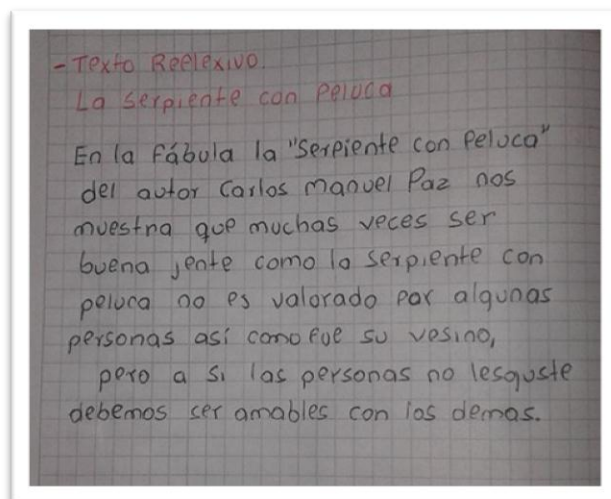 - Texto Reelexivo.
La serpiente con peluca
En la Fábula la "Serpiente con Peluca"
del autor Carlos manuel Paz nos
muestra que muchas veces ser
buena jente como la serpiente con
peluca no es valorado por algunas
personas así como fue su vesino,
pero a si las personas no lesguste
debemos ser amables con los demas.